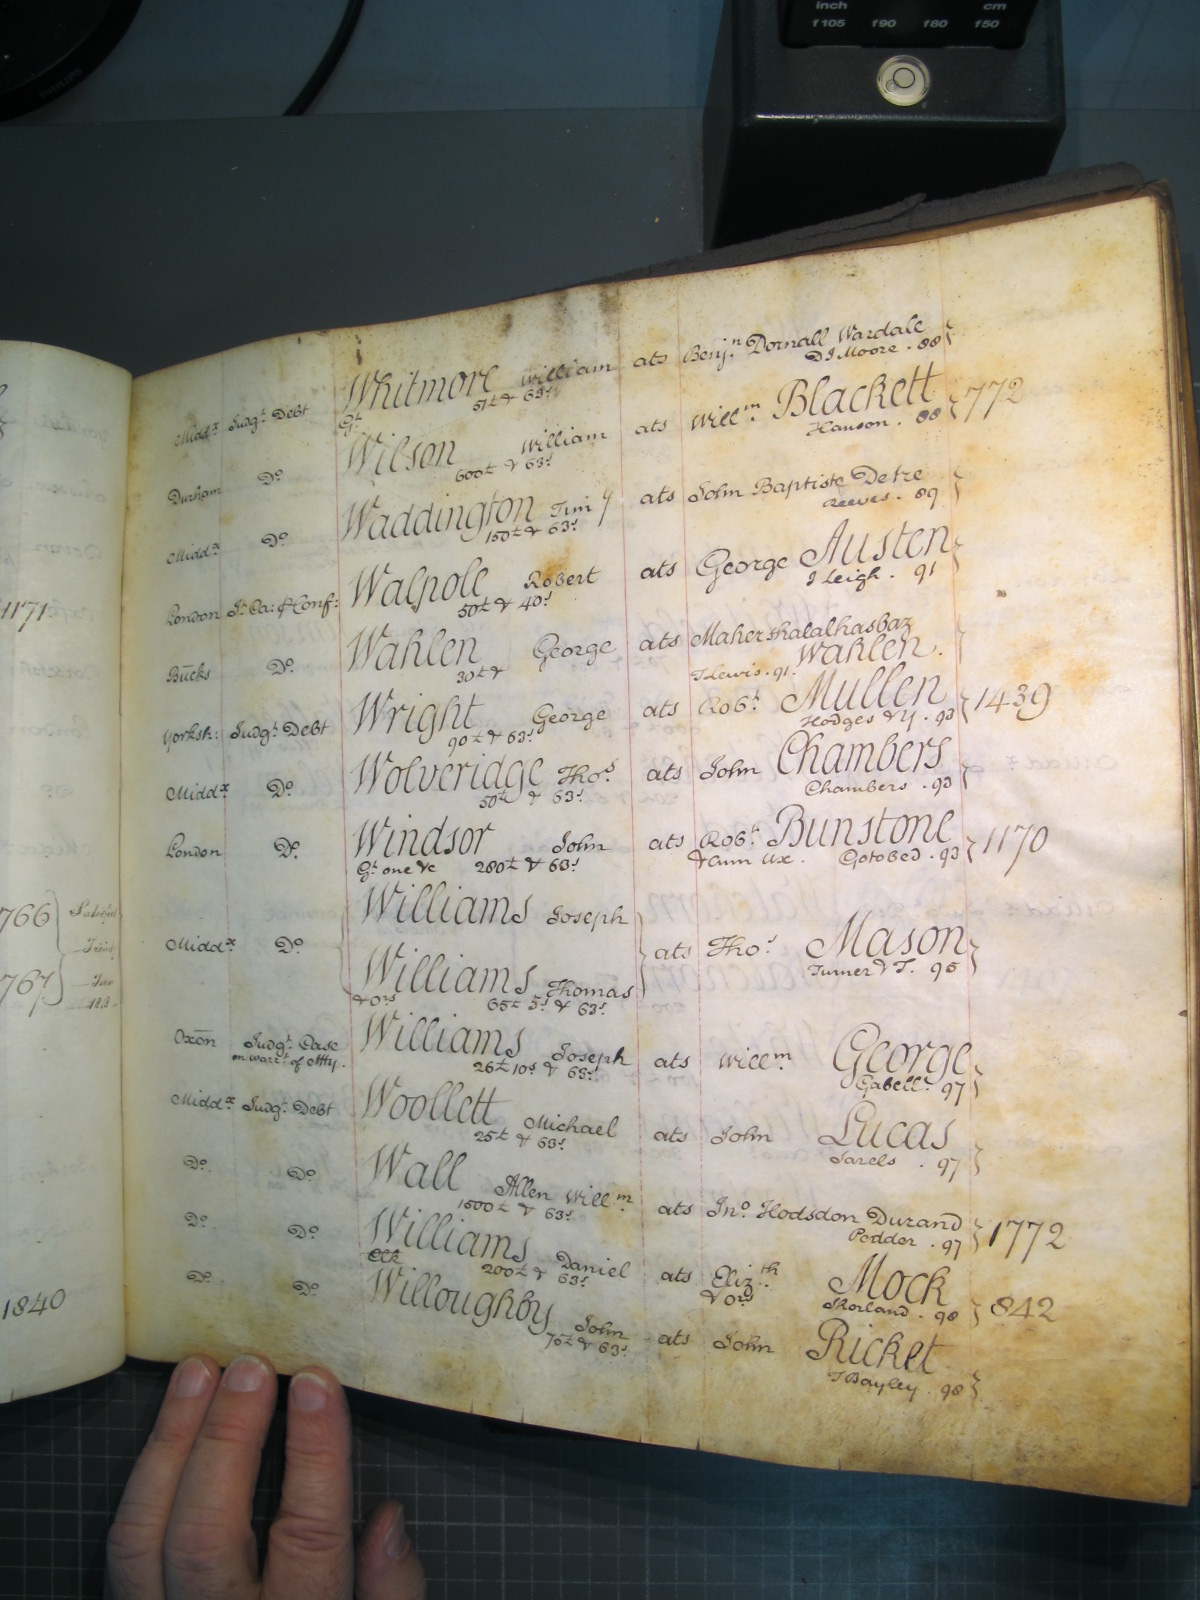 inch cm
f105 f90 f80 f50
PHILIPS
1171
766
767
1840
Midd.x Judg.t Debt Whitmore William ats Benj.n Dornall Wardale
G.t 57£ & 63s D J Moore . 88
Durham D.o Wilson William ats Will.m Blackett 772
600£ & 63s Hanson . 88
Midd.x D.o Waddington Tim.y ats John Baptiste Detre
150£ & 63s Reeves . 89
London J.t Ca: & Conf: Walpole Robert ats George Austen
50£ & 40s J Leigh . 91
Bucks D.o Wahlen George ats Mahershalalhasbaz
30£ & T Lewis . 91. Wahlen.
Yorksh: Judg.t Debt Wright George ats Rob.t Mullen 1439
90£ & 63s Hodges & Y . 93
Midd.x D.o Wolveridge Tho.s ats John Chambers
50£ & 63s Chambers . 93
London D.o Windsor John ats Rob.t Bunstone 1170
G.t one &c 280£ & 63s & Ann Ux . Gotobed . 93
Williams Joseph
Midd.x D.o ats Tho.s Mason
Turner & T. 95
Williams Thomas
& ors 65£ 5s & 63s
Oxon Judg.t Case Williams Joseph ats Will.m George
on warr.t of Atty. 26£ 10s & 63s Gabell . 97
Midd.x Judg.t Debt Woollett Michael ats John Lucas
25£ & 63s . 97
D.o D.o Wall Allen Will.m ats Jn.o Hodsdon Durand 1772
1500£ & 63s Pedder . 97
D.o D.o Williams Daniel ats Eliz.th Mock 842
Clk 200£ & 63s & ors . 98
D.o D.o Willoughby John ats John Ricket
75£ & 63s T Bayley . 98